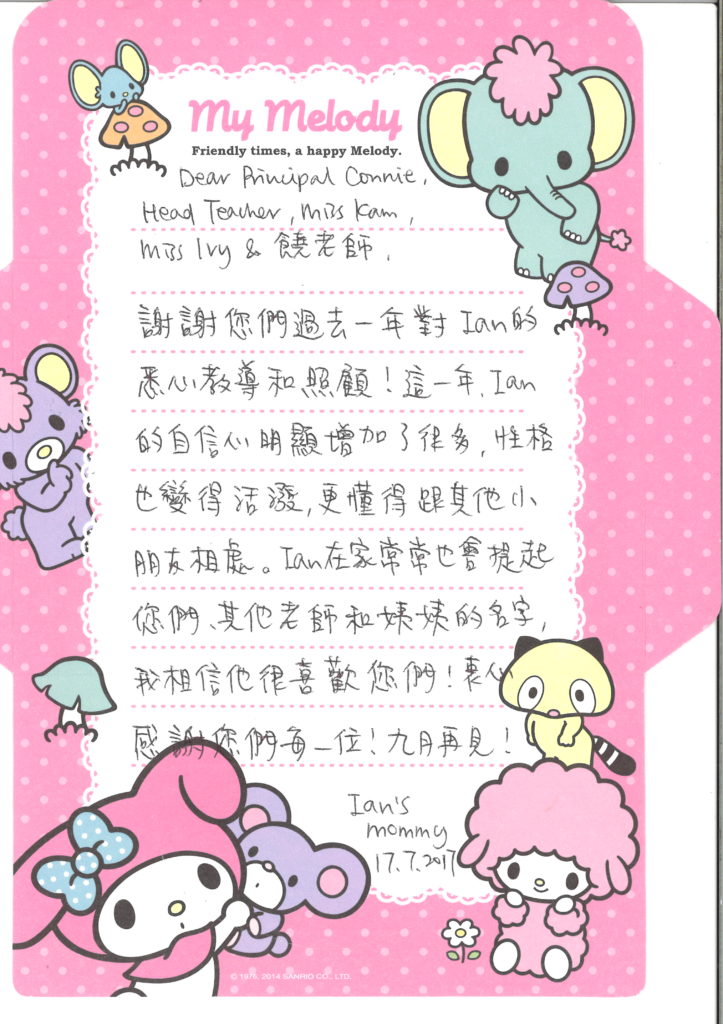 My Melody
Friendly times, a happy Melody.
Dear Principal Connie,
Head Teacher, Miss Kam,
Miss Ivy & 饒老師,
謝謝您們過去一年對 Ian的
悉心教導和照顧！這一年, Ian
的自信心明顯增加了很多, 性格
也變得活潑, 更懂得跟其他小
朋友相處。Ian在家常常也會提起
您們、其他老師和姨姨的名字,
我相信他很喜歡您們！衷心
感謝您們每一位！九月再見！
Ian's
mommy
17.7.2017
© 1976, 2014 SANRIO CO., LTD.